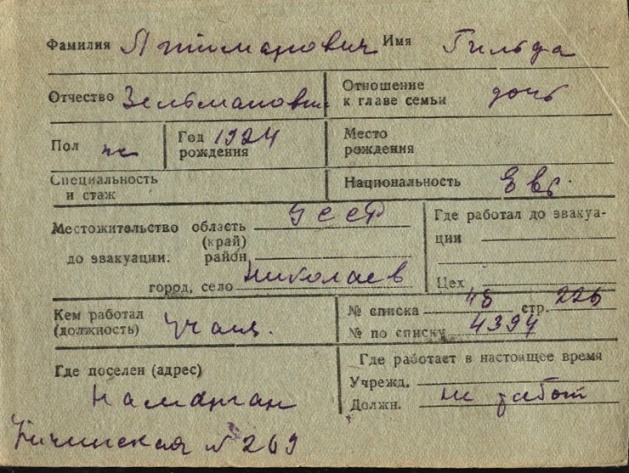 Фамилия Имя Гильда
Отчество Зельмановн Отношение к главе семьи дочь
Пол ж Год рождения 1924 Место рождения
Специальность и стаж Национальность Евр.
Местожительство область (край) УССР Где работал до эвакуации
до эвакуации. район,
город, село Николаев Цех
Кем работал (должность) учащ. № списка 45 стр. 226
№ по списку 4394
Где поселен (адрес) Где работает в настоящее время
Наманган Учрежд.
Должн. не работ
№ 269